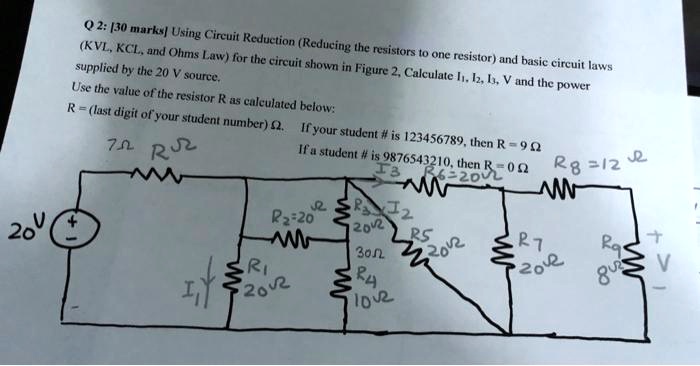 Q 2: [30 marks] Using Circuit Reduction (Reducing the resistors to one resistor) and basic circuit laws
(KVL, KCL, and Ohms Law) for the circuit shown in Figure 2, Calculate I₁, I₂, I₃, V and the power
supplied by the 20 V source.
Use the value of the resistor R as calculated below:
R = (last digit of your student number) Ω. If your student # is 123456789, then R = 9 Ω
If a student # is 9876543210, then R = 0 Ω
7Ω
RΩ
I3
R6=20Ω
R8=12Ω
20V
+
-
R2=20Ω
R3
20Ω
I2
30Ω
R5
20Ω
R7
20Ω
R9
8Ω
+
V
-
I1
R1
20Ω
R4
10Ω